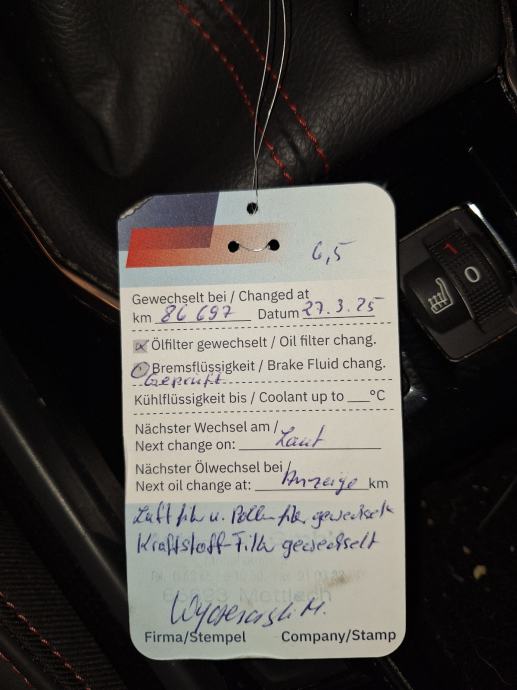 6,5
Gewechselt bei / Changed at
km 86 697 Datum 27.3.25
Ölfilter gewechselt / Oil filter chang.
Bremsflüssigkeit / Brake Fluid chang.
Geprüft
Kühlflüssigkeit bis / Coolant up to ___°C
Nächster Wechsel am /
Next change on: Laut
Nächster Ölwechsel bei /
Next oil change at: Anzeige km
Luftfilt. u. Pollenfilt. gewechselt
Kraftstoff-Filt. gewechselt
Mettlach
Firma/Stempel Company/Stamp
1
0